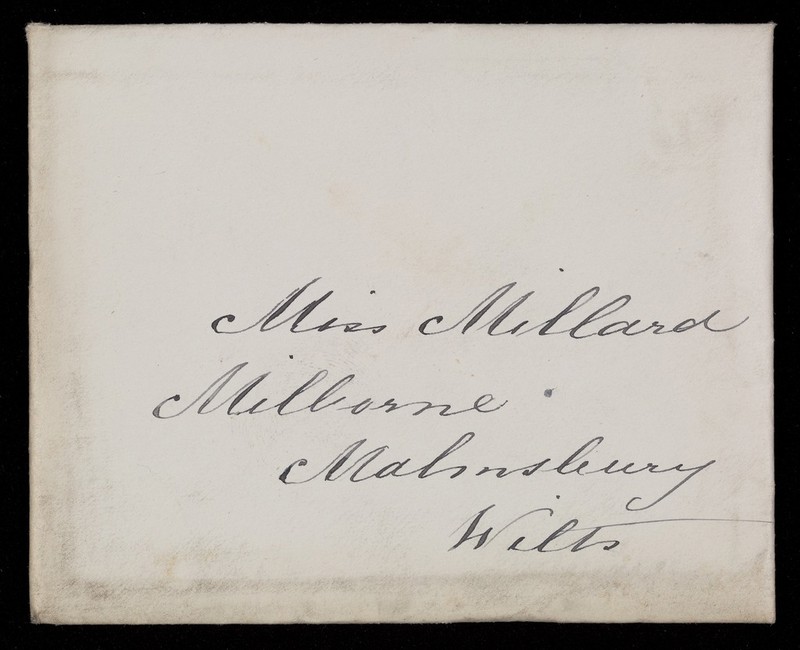 Miss Millard
Milborne
Malmsbury
Wilts